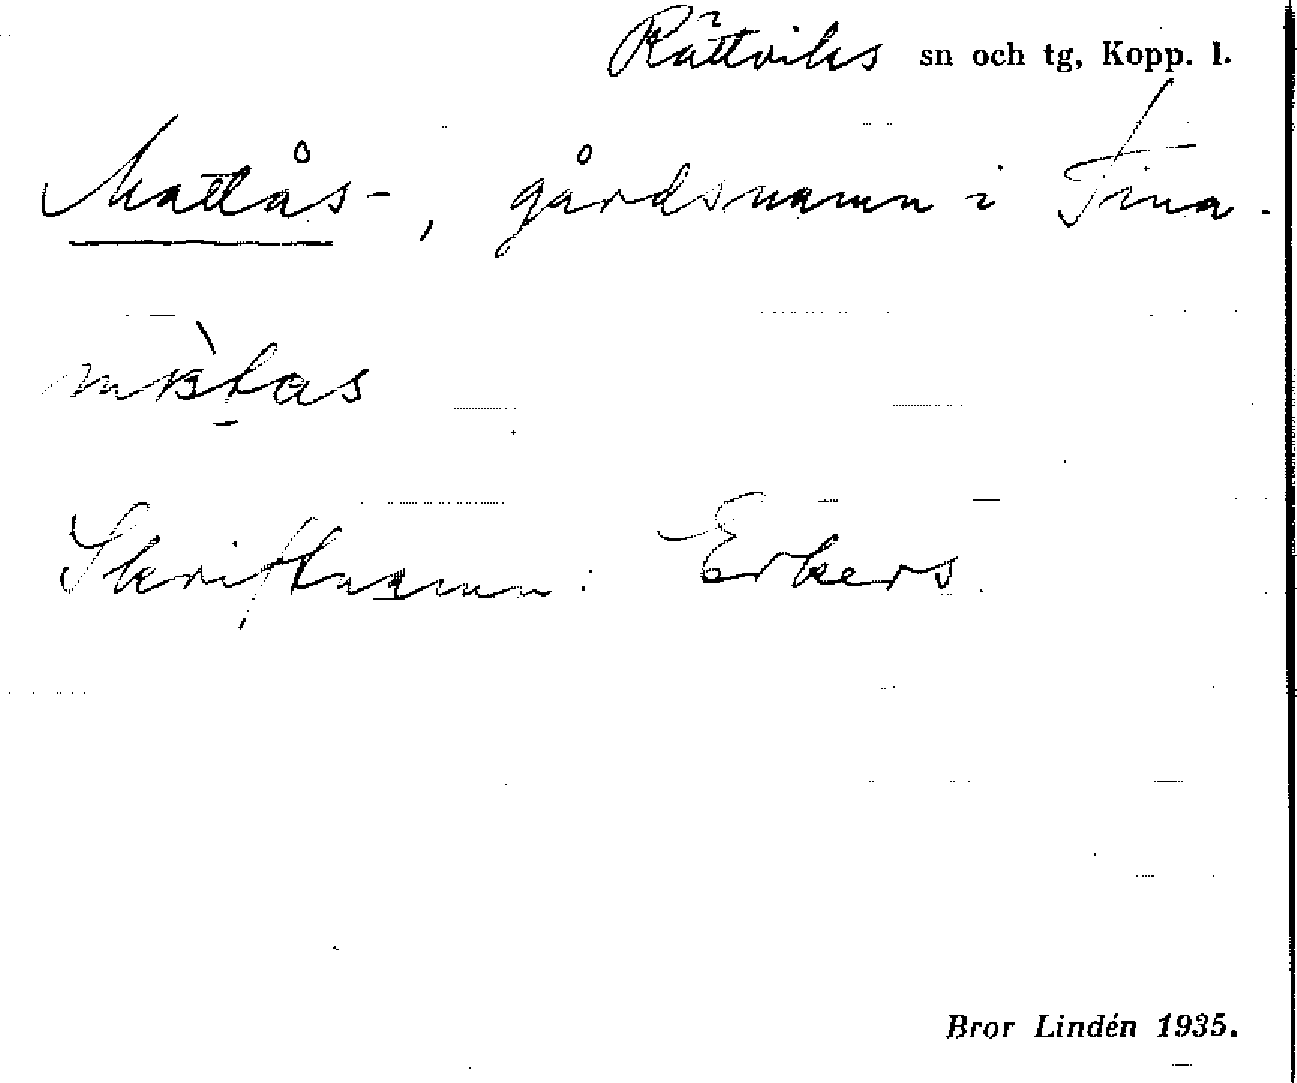 Rättviks sn och tg, Kopp. l.
Mattås-, gårdsnamn i Fina.
Skriftnamn: Erkers.
Bror Lindén 1935.